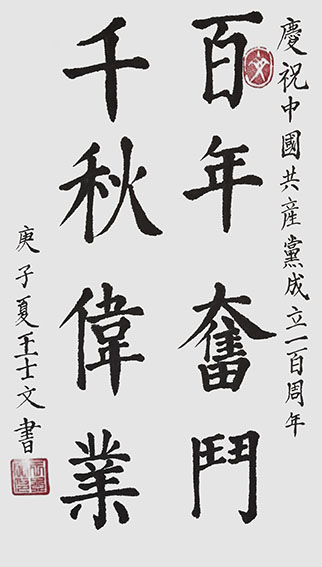 慶祝中國共產黨成立一百周年
百年奮鬥
千秋偉業
庚子夏王士文書